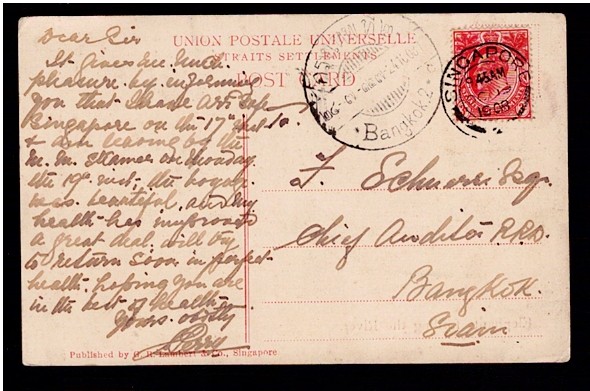 UNION POSTALE UNIVERSELLE
STRAITS SETTLEMENTS
POST CARD
Dear Sir
It gives me much
pleasure by informing
you that I have arr. safe
Singapore on the 17th inst
+ am leaving by the
M. M. steamer on monday
the 19th inst. the voyage
was beautiful and my
health has improved
a great deal will try
to return soon in perfect
health hoping you are
in the best of health
Yours
To.
F. Esqr.
Chief Auditor R.R.D.
Bangkok.
Siam
Bangkok 2
SINGAPORE
AM
Published by G. R. Lambert & Co., Singapore